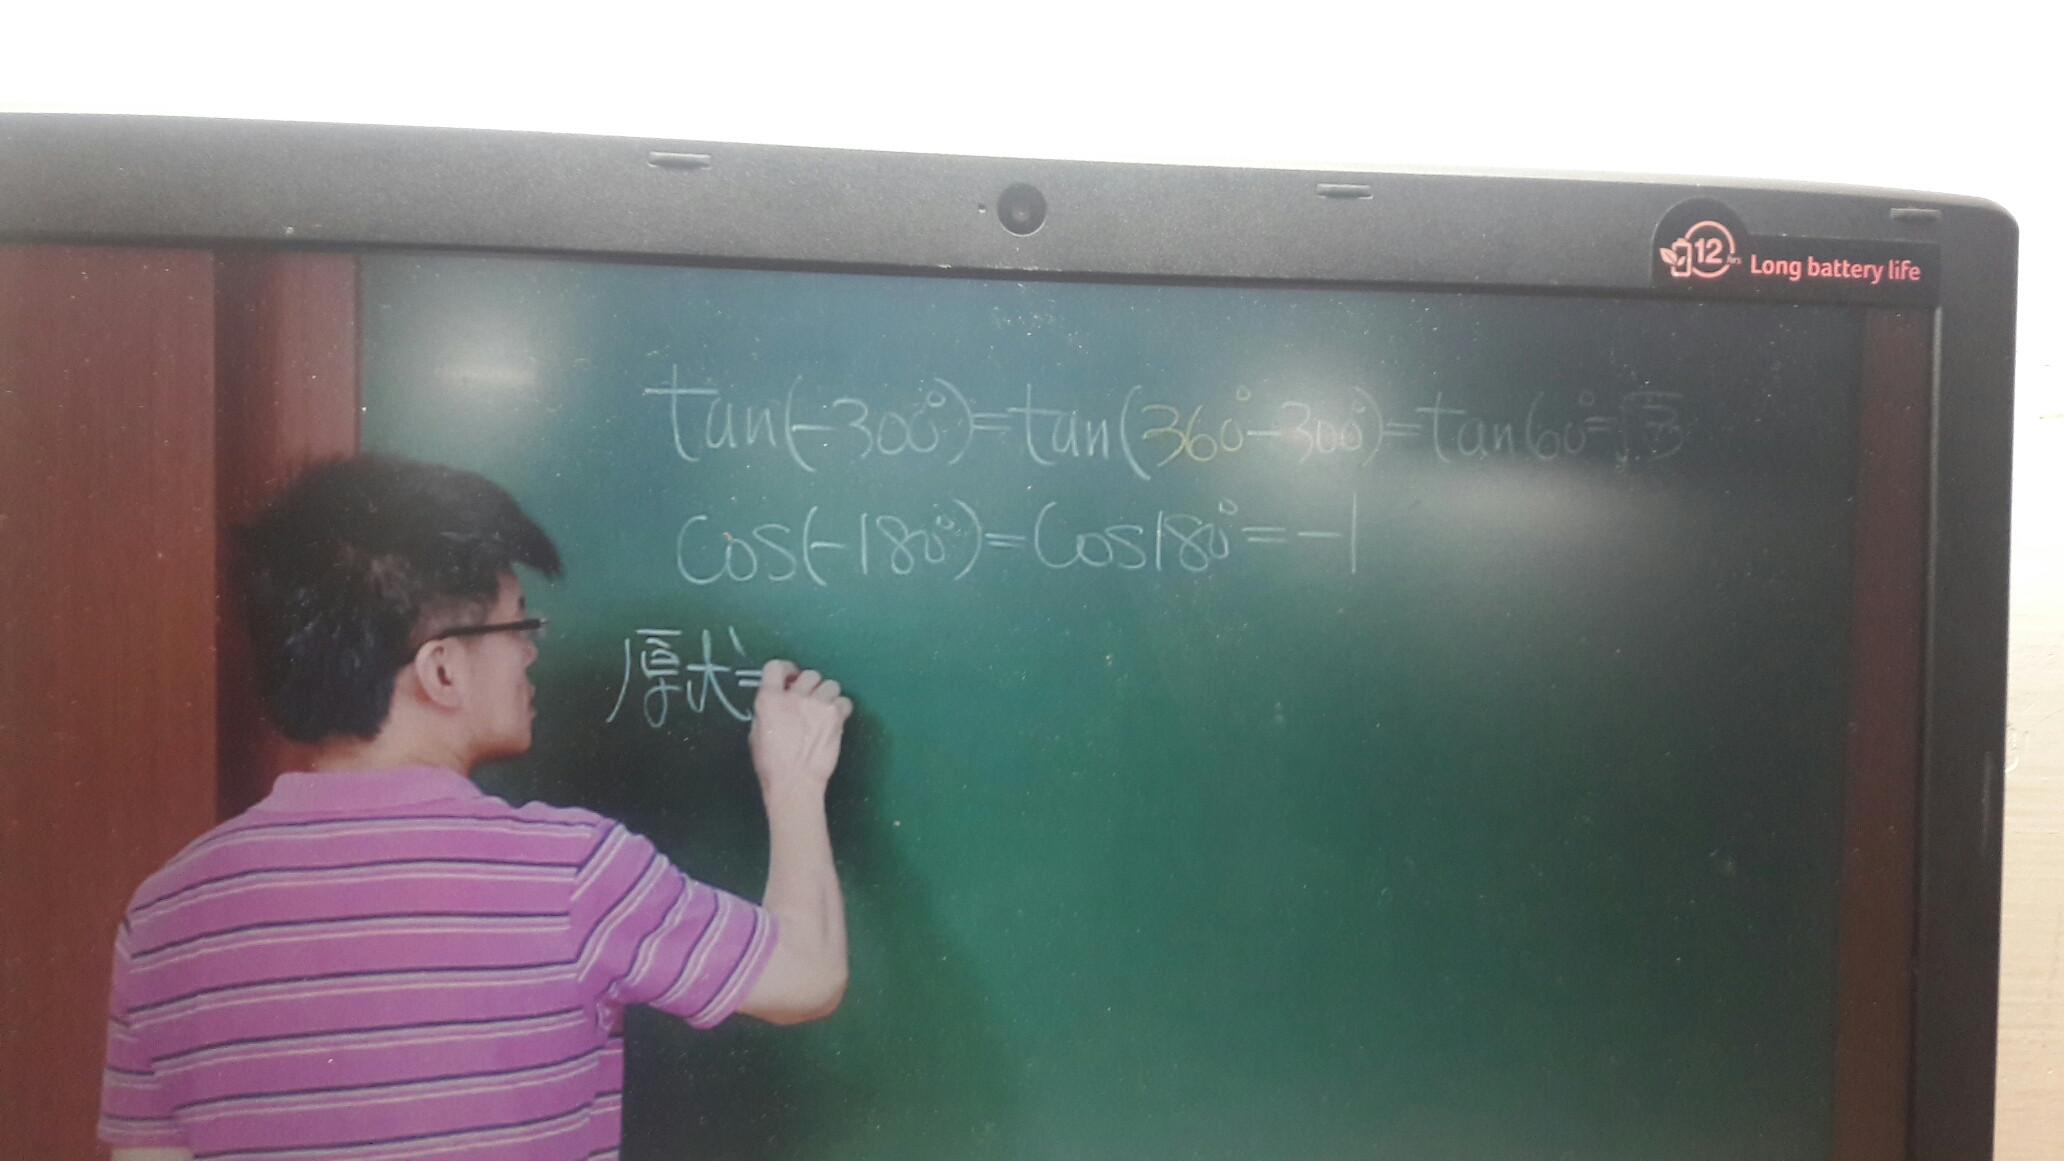 12 hrs Long battery life
tan(-300°)=tan(360°-300°)=tan60°=√3
cos(-180°)=cos180°=-1
原式=